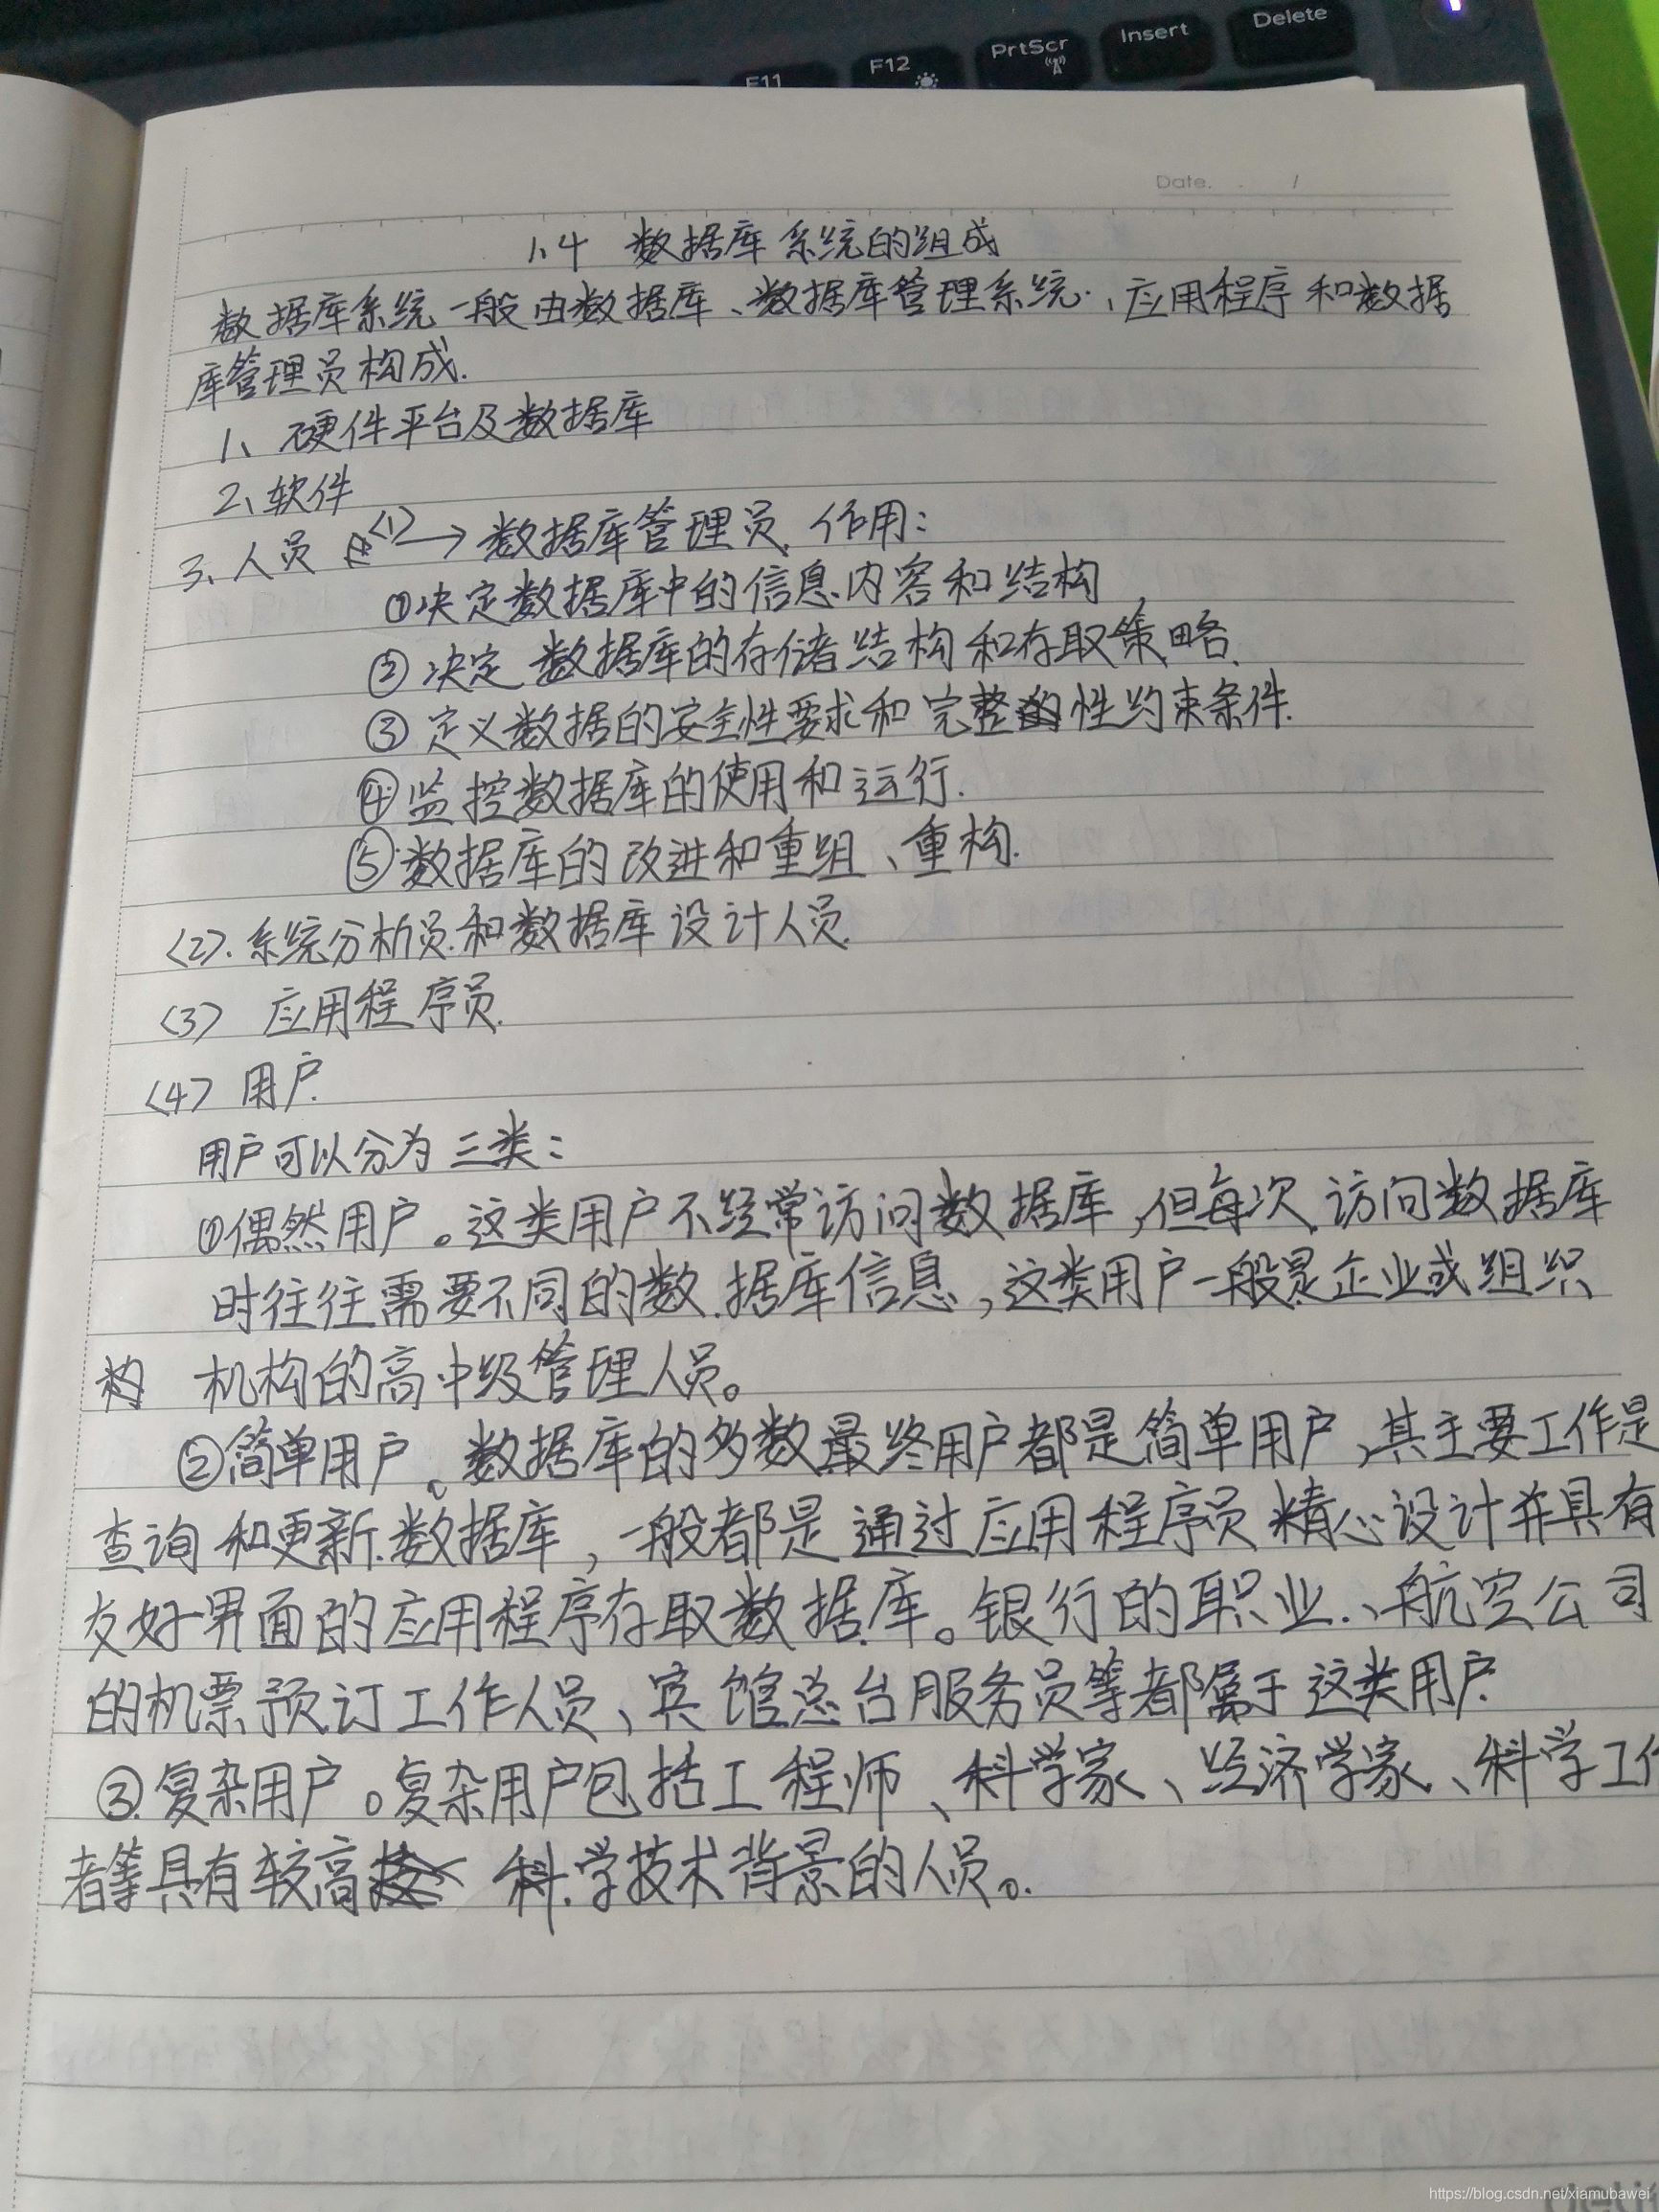 Delete
Insert
PrtScr
F12
F11
Date.
1.4 数据库系统的组成
数据库系统一般由数据库、数据库管理系统、应用程序和数据
库管理员构成.
1、硬件平台及数据库
2、软件
3、人员 <1>→数据库管理员 作用:
①决定数据库中的信息内容和结构
②决定数据库的存储结构和存取策略.
③定义数据的安全性要求和完整性约束条件.
④监控数据库的使用和运行.
⑤数据库的改进和重组、重构.
<2>.系统分析员和数据库设计人员
<3> 应用程序员.
<4> 用户.
用户可以分为三类:
①偶然用户。这类用户不经常访问数据库,但每次访问数据库
时往往需要不同的数据库信息,这类用户一般是企业或组织
构 机构的高中级管理人员。
②简单用户。数据库的多数最终用户都是简单用户,其主要工作是
查询和更新数据库,一般都是通过应用程序员精心设计并具有
友好界面的应用程序存取数据库。银行的职业、航空公司
的机票预订工作人员、宾馆总台服务员等都属于这类用户.
③复杂用户。复杂用户包括工程师、科学家、经济学家、科学工作
者等具有较高 科学技术背景的人员。
https://blog.csdn.net/xiamubawei